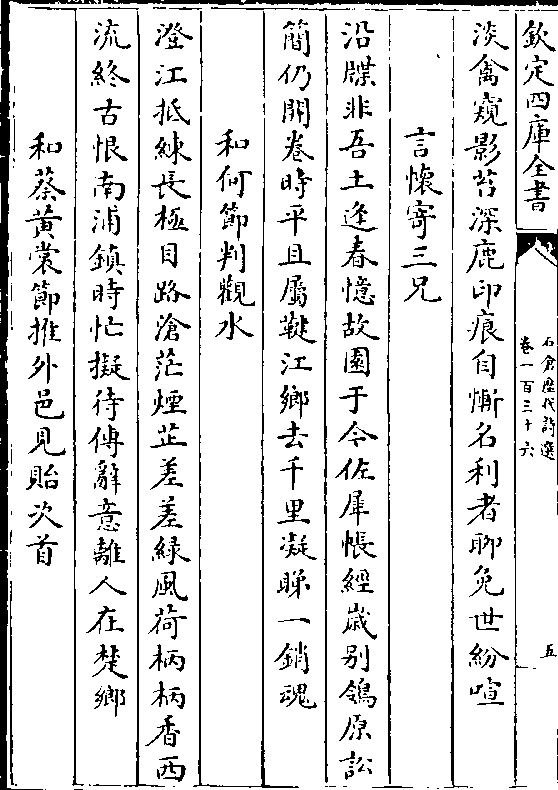 欽定四庫全書
石倉歷代詩選
卷一百三十六
五
淡禽窺影苔深鹿印痕自慚名利者聊免世紛喧
言懷寄三兄
沿牒非吾土逢春憶故園于今佐犀帳經歲别鴒原訟
簡仍開卷時平且屬鞬江鄉去千里凝睇一銷魂
和何節判觀水
澄江抵練長極目路滄茫煙芷差差緑風荷柄柄香西
流終古恨南浦鎮時忙擬待傳辭意離人在楚鄉
和蔡黃裳節推外邑見貽次首